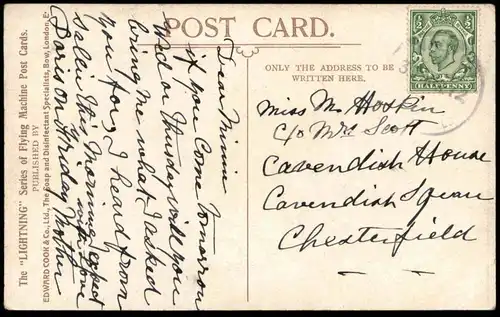 POST CARD.
The "LIGHTNING" Series of Flying Machine Post Cards.
PUBLISHED BY
EDWARD COOK & Co., Ltd., The Soap and Disinfectant Specialists, Bow, London, E.
Dear Minnie
if you come tomorrow
Wed or Thursday will you
bring me what I asked
you for, I heard from
Salen this morning expect
with love
Doris on Friday Mother
ONLY THE ADDRESS TO BE
WRITTEN HERE.
HALFPENNY
Miss M. Hoskin
c/o Mrs Scott
Cavendish House
Cavendish Squean
Chesterfield